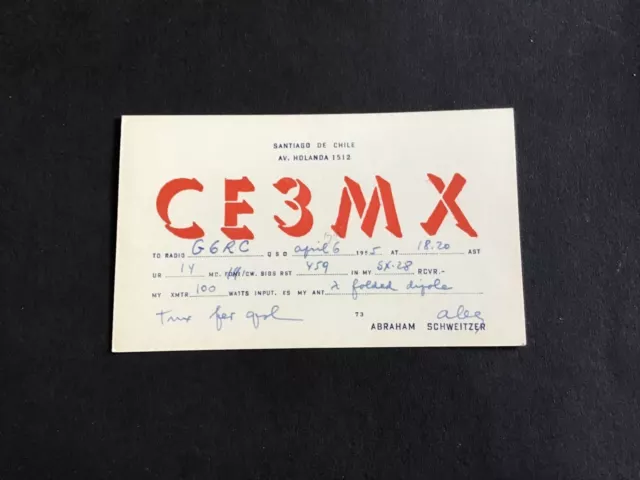 SANTIAGO DE CHILE
AV. HOLANDA 1512
CE3MX
TO RADIO G6RC QSO april 6 19 5 AT 18.20 AST
UR 14 MC. /CW. SIGS RST 459 IN MY SX-28 RCVR.-
MY XMTR 100 WATTS INPUT, ES MY ANT. folded dipole
Tnx fer qsl 73
ABRAHAM SCHWEITZER